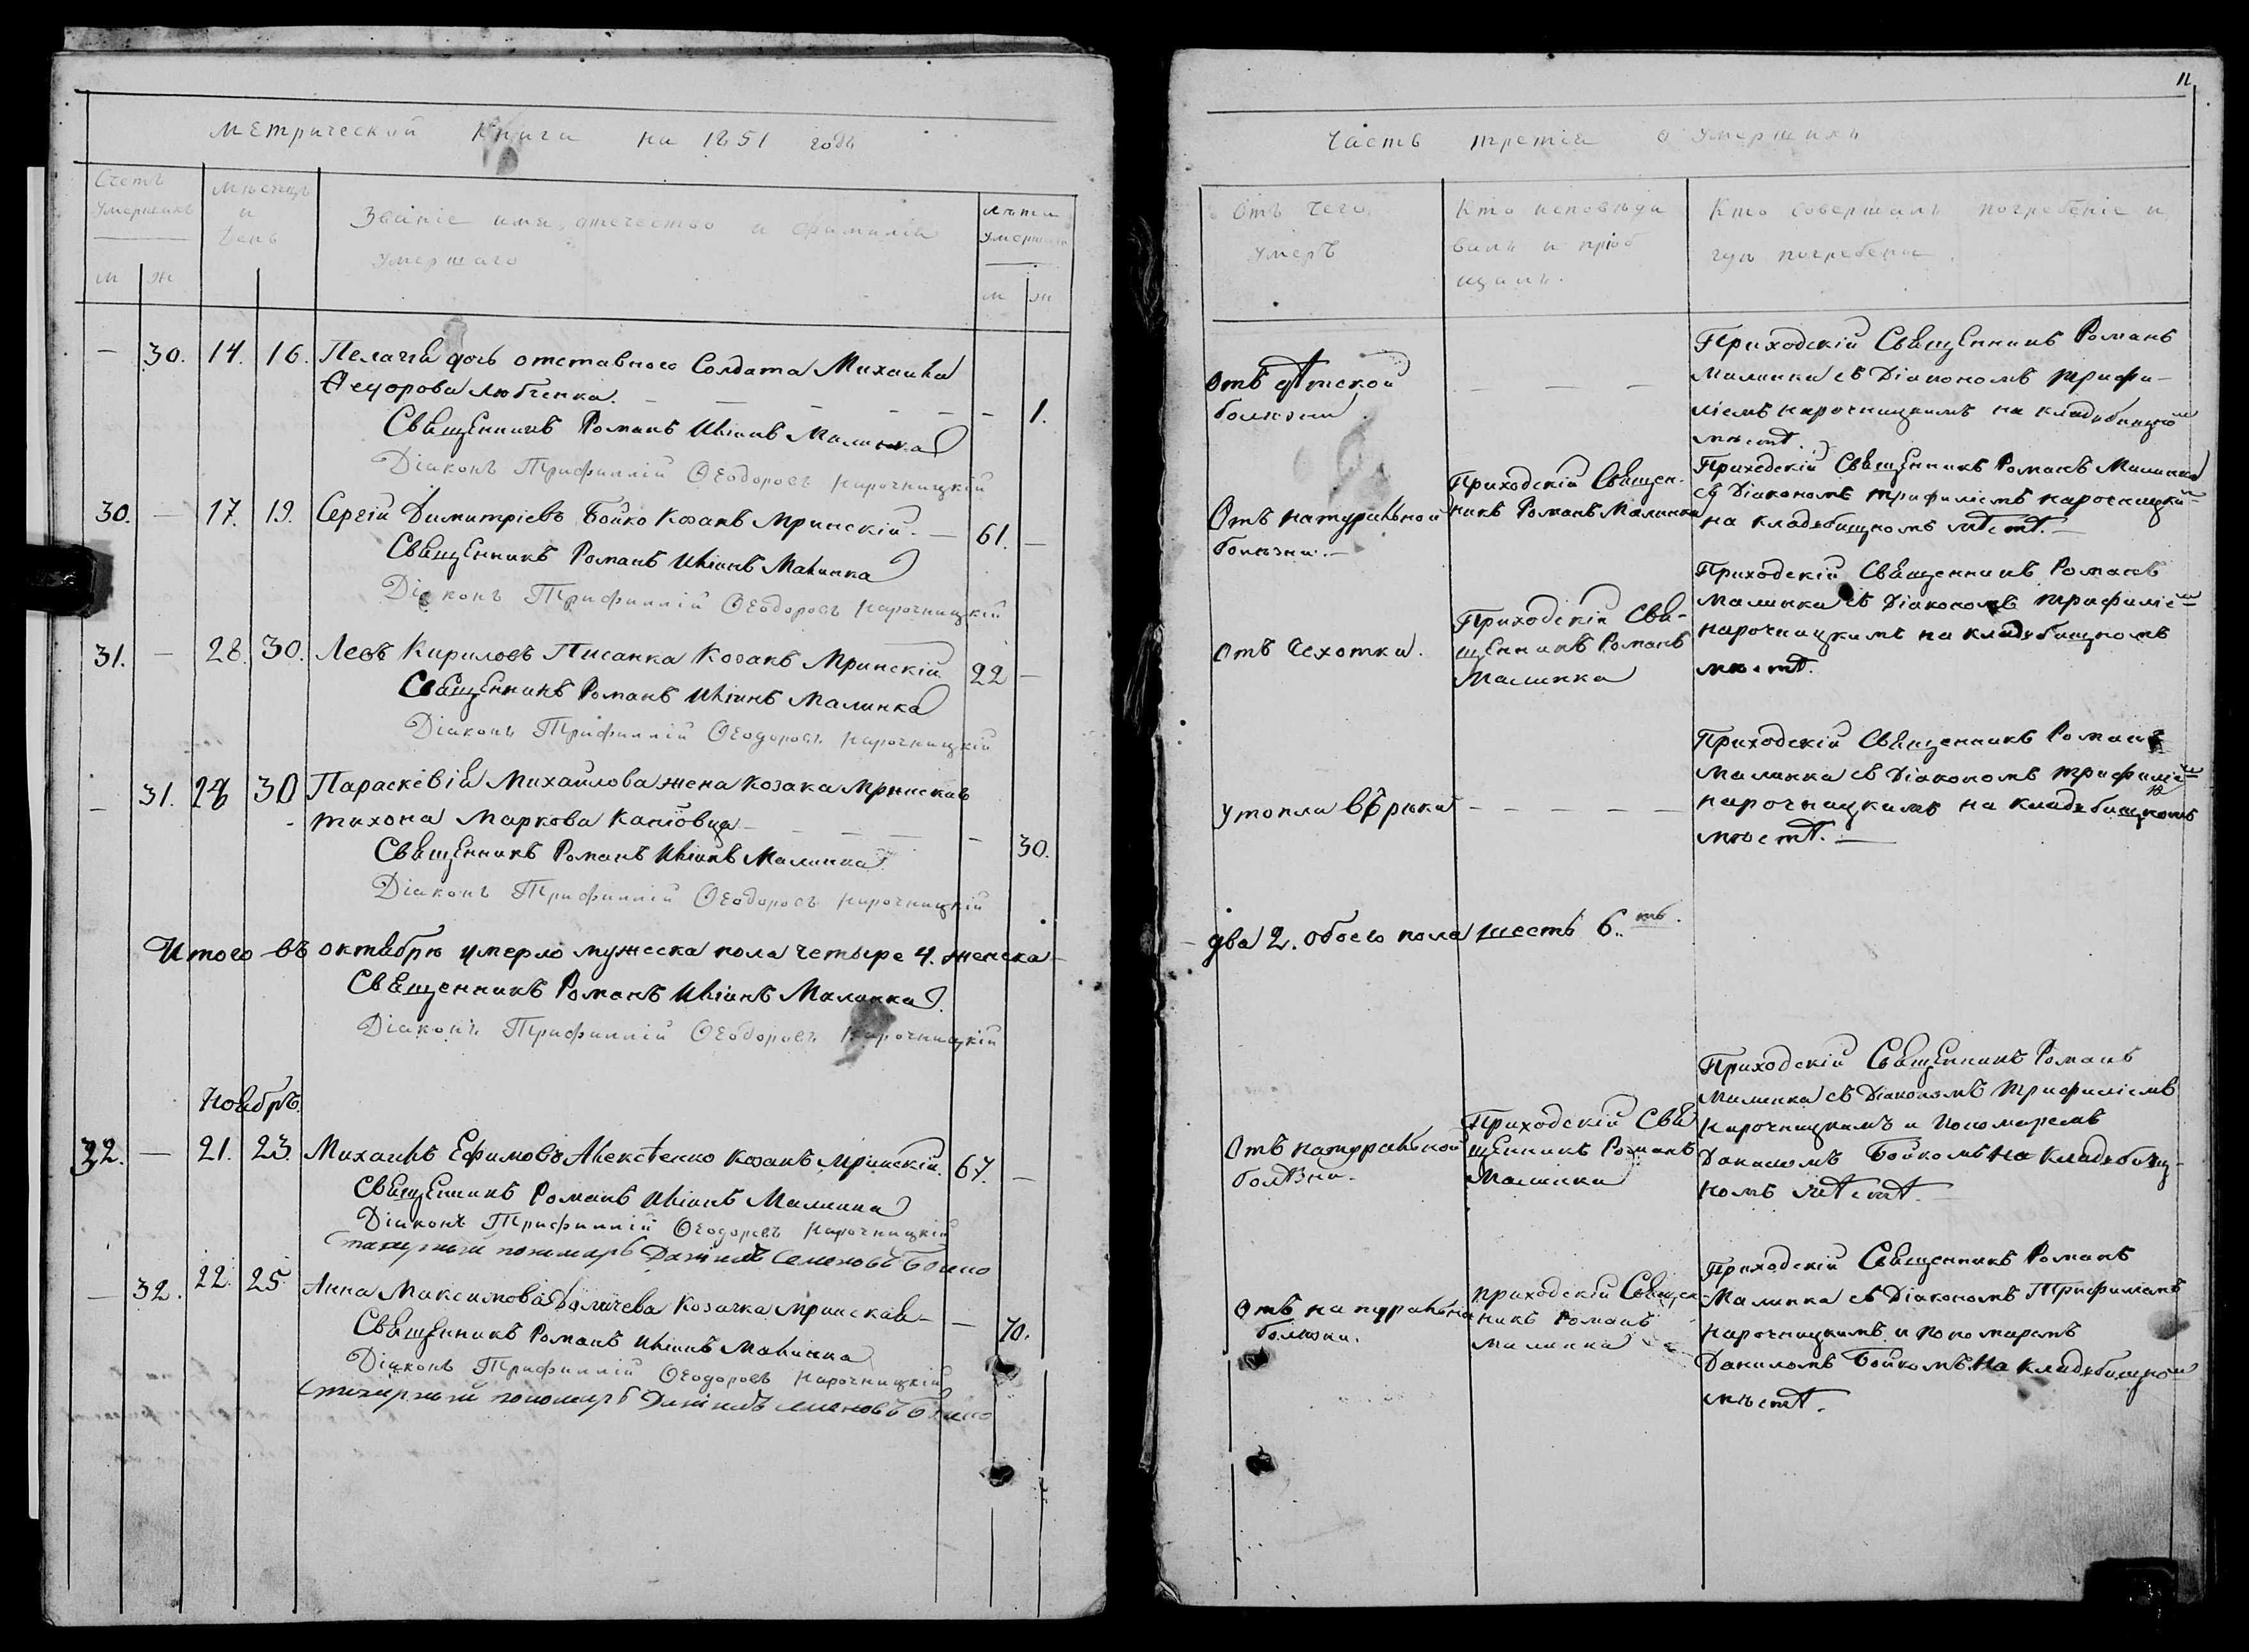 Метрической Книги на 1851 годъ
Счетъ умершихъ
Мѣсяцъ и День
Званіе имя, отчество и фамилія
умершаго
Лѣта умершаго
м ж
м ж
— 30. 14. 16. Пелагія дочь отставного Солдата Михаила
Феодорова Любченка. — — — — — — 1.
Священникъ Романъ Иліинъ Малинка
Діаконъ Трифиллій Ѳеодоровъ Нарочницкій
30. — 17. 19. Сергій Димитріевъ Бойко Козакъ Мринскій. — 61. —
Священникъ Романъ Иліинъ Малинка
Діаконъ Трифиллій Ѳеодоровъ Нарочницкій
31. — 28. 30. Левъ Кириловъ Писанка Козакъ Мринскій 22 —
Священникъ Романъ Иліинъ Малинка
Діаконъ Трифиллій Ѳеодоровъ Нарочницкій
— 31. 28 30 Параскевія Михайлова жена козака Мринскаго
Тихона Маркова — — — — 30.
Священникъ Романъ Иліинъ Малинка
Діаконъ Трифиллій Ѳеодоровъ Нарочницкій
Итого въ октябрѣ умерло мужеска пола четыре 4. женска
Священникъ Романъ Иліинъ Малинка
Діаконъ Трифиллій Ѳеодоровъ Нарочницкій
Ноябрь.
32. — 21. 23. Михаилъ Ефимовъ Алексѣенко Козакъ Мринскій. 67. —
Священникъ Романъ Иліинъ Малинка
Діаконъ Трифиллій Ѳеодоровъ Нарочницкій
пономарь Даніилъ Семеновъ Бойко
— 32. 22. 25 Анна Максимова Козачка Мринская — — 70.
Священникъ Романъ Иліинъ Малинка
Діаконъ Трифиллій Ѳеодоровъ Нарочницкій
пономарь Даніилъ Семеновъ Бойко
11
Часть третія о умершихъ
Отъ чего
умеръ
Кто исповѣды
валъ и пріоб
щалъ.
Кто совершалъ погребеніе и
гдѣ погребены.
Отъ дѣтской
болѣзни.
— — —
Приходскій Священникъ Романъ
Малинка съ Діакономъ Трифи-
ліемъ Нарочницкимъ на кладбищномъ
мѣстѣ.
Отъ натуральной
болѣзни. —
Приходскій Священ-
никъ Романъ Малинка
Приходскій Священникъ Романъ Малинка
съ Діакономъ Трифиліемъ Нарочницкимъ
на кладбищномъ мѣстѣ. —
Отъ Чехотки.
Приходскій Свя-
щенникъ Романъ
Малинка
Приходскій Священникъ Романъ
Малинка съ Діакономъ Трифиліемъ
Нарочницкимъ на кладбищномъ
мѣстѣ.
утопла въ рѣкѣ
— — — — —
Приходскій Священникъ Романъ
Малинка съ Діакономъ Трифиліемъ
Нарочницкимъ на кладбищномъ
мѣстѣ. —
два 2. обоего пола шесть 6.ть.
Отъ натуральной
болѣзни.
Приходскій Свя
щенникъ Романъ
Малинка
Приходскій Священникъ Романъ
Малинка съ Діакономъ Трифиліемъ
Нарочницкимъ и Пономаремъ
Даниломъ Бойкомъ на кладбищ-
номъ мѣстѣ.
Отъ натуральной
болѣзни.
приходскій Священ
никъ Романъ
Малинка
Приходскій Священникъ Романъ
Малинка съ Діакономъ Трифиліемъ
Нарочницкимъ и пономаремъ
Даниломъ Бойкомъ. На кладбищномъ
мѣстѣ.